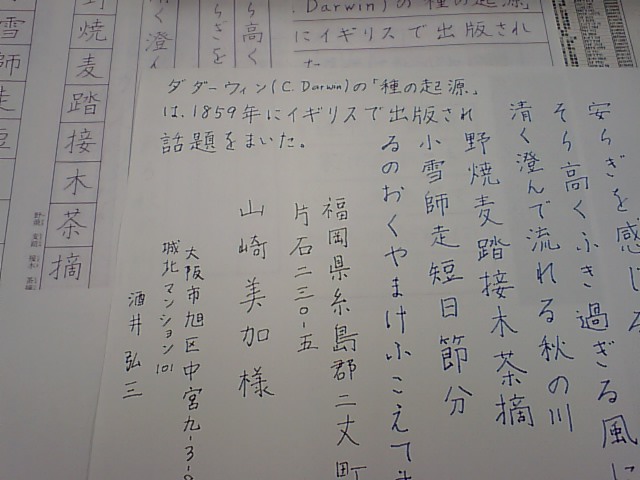 .Darwin)の「種の起源」
にイギリスで出版され
た
ダダーウィン(C.Darwin)の「種の起源」
は、1859年にイギリスで出版され
話題をまいた。
安らぎを感じる
そら高くふき過ぎる風に
清く澄んで流れる秋の川
野焼麦踏接木茶摘
小雪師走短日節分
るのおくやまけふこえて
福岡県糸島郡二丈町
片石二三〇-五
山崎美加様
大阪市旭区中宮九-3-
城北マンション101
酒井弘三
ら高く
ぎを
清く澄
野焼麦踏接木茶摘
雪
師
走
短